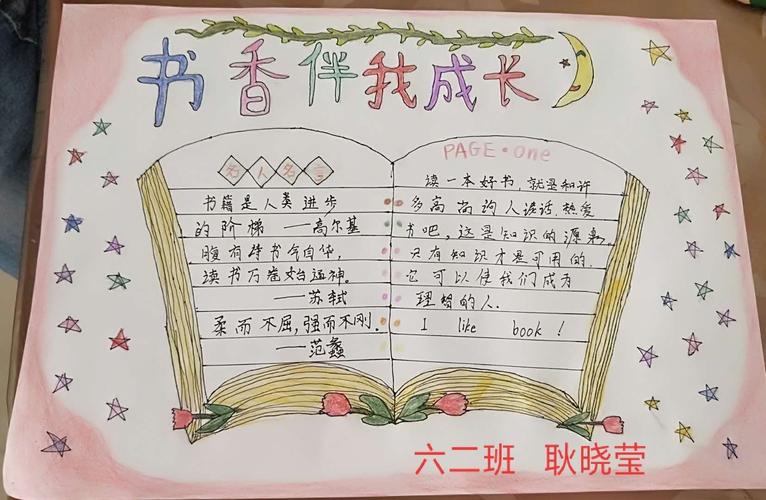 书香伴我成长
名人名言
书籍是人类进步
的阶梯——高尔基
腹有诗书气自华,
读书万卷始通神。
——苏轼
柔而不屈,强而不刚.
——范蠡
PAGE·one
读一本好书,就是和许
多高尚的人谈话.热爱
书吧,这是知识的源泉。
只有知识才是可用的.
它可以使我们成为
理想的人.
I like book!
六二班 耿晓莹